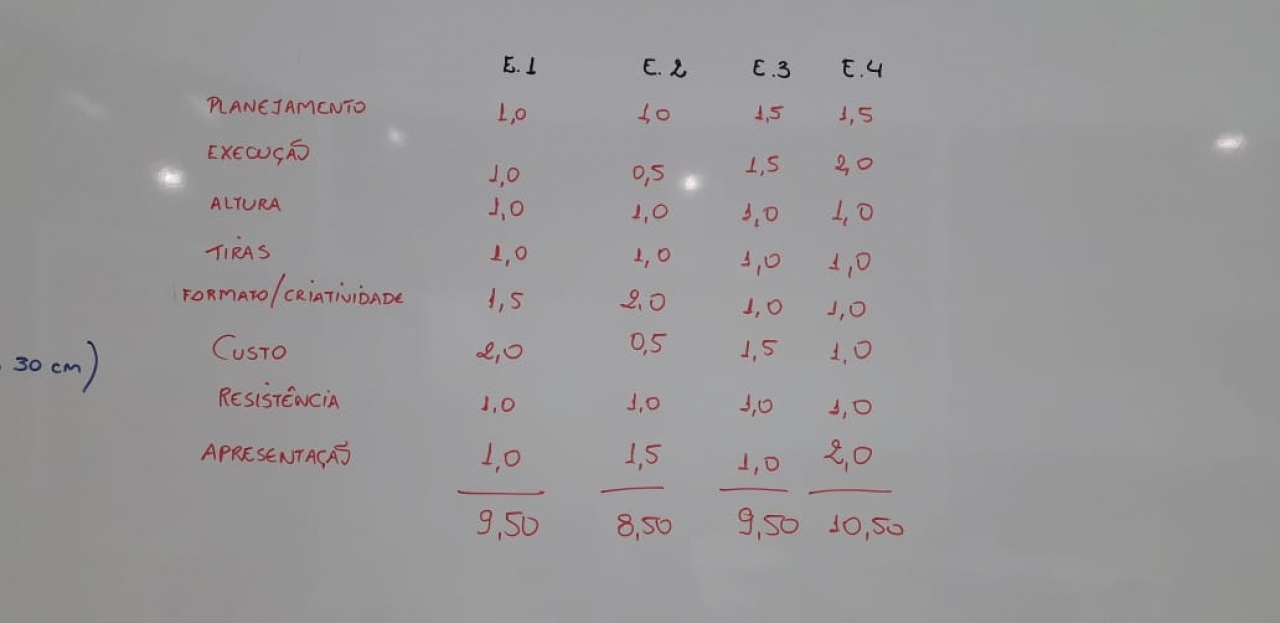 E.1 E.2 E.3 E.4
PLANEJAMENTO 1,0 1,0 1,5 1,5
EXECUÇÃO 1,0 0,5 1,5 2,0
ALTURA 1,0 1,0 1,0 1,0
TIRAS 1,0 1,0 1,0 1,0
FORMATO/CRIATIVIDADE 1,5 2,0 1,0 1,0
30 cm) CUSTO 2,0 0,5 1,5 1,0
RESISTÊNCIA 1,0 1,0 1,0 1,0
APRESENTAÇÃO 1,0 1,5 1,0 2,0
9,50 8,50 9,50 10,50